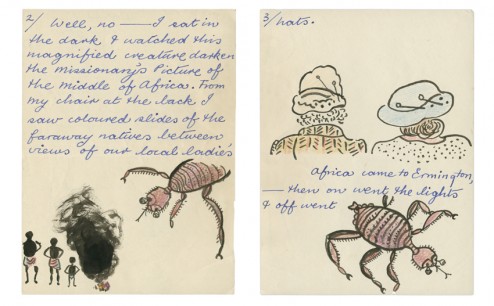 2/ Well, no — I sat in
the dark & watched this
magnified creature darken
the missionary's Picture of
the middle of Africa. From
my chair at the back I
saw coloured slides of the
faraway natives between
views of our local ladies'
3/ hats.
Africa came to Ermington,
— then on went the lights
& off went